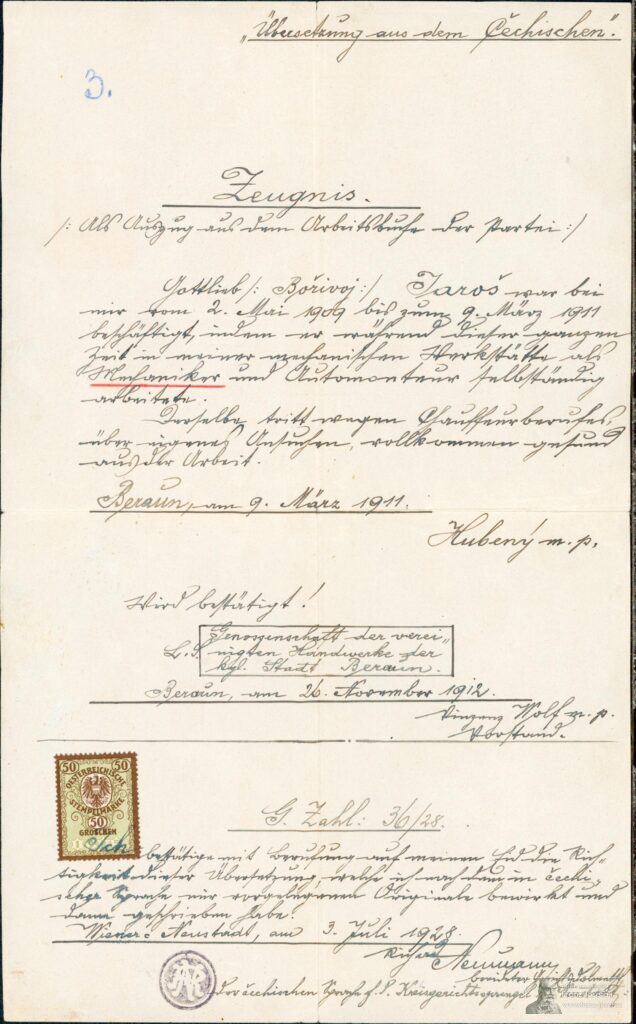 „Übersetzung aus dem Čechischen".
3.
Zeugnis.
/: Als Auszug aus dem Arbeitsbuche der Partei :/
Gottlieb /: Bořivoj :/ Jaroš war bei
mir vom 2. Mai 1909 bis zum 9. März 1911
beschäftigt, indem er während dieser ganzen
Zeit in meiner mechanischen Werkstätte als
Mechaniker und Automonteur selbständig
arbeitete.
Derselbe tritt wegen Chauffeurberufes,
über eigenes Ansuchen, vollkommen gesund
aus der Arbeit.
Beraun, am 9. März 1911.
Hubený m. p.
Wird bestätigt!
Genossenschaft der verei-
L. S. nigten Handwerke der
kgl. Stadt Beraun.
Beraun, am 26. November 1912.
Vinzenz Wolf m. p.
Vorstand.
50 50
OESTERREICHISCHE
STEMPELMARKE
50
GROSCHEN
G. Zahl: 36/28.
Ich bestätige mit Berufung auf meinen Eid die Rich-
tigkeit dieser Übersetzung, welche ich nach dem in čechi-
scher Sprache mir vorgelegenen Originale bewirkt und
dann geschrieben habe.
Wiener-Neustadt, am 3. Juli 1928
Neumann
beeideter Gerichtsdolmetsch
der čechischen Sprache f. d. Kreisgerichtssprengel